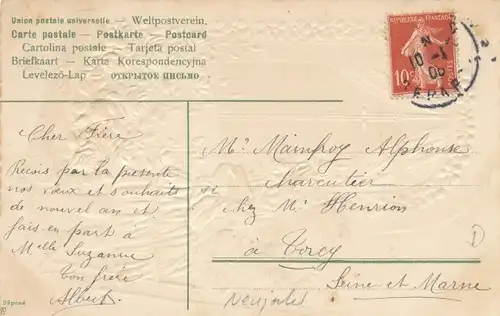 Union postale universelle – Weltpostverein.
Carte postale – Postkarte – Postcard
Cartolina postale – Tarjeta postal
Briefkaart – Karta Korespondencyjna
Levelező-Lap – ОТКРЫТОЕ ПИСЬМО
RÉPUBLIQUE FRANÇAISE
10c
POSTES
Cher Frère
Reçois par la présente
nos vœux et souhaits
de nouvel an et
fais en part à
Melle Suzanne
Ton frère
Albert
Mr Mainfroy Alphonse
charcutier
chez Mr Henrion
à Torcy
Seine et Marne
Neujahr
D